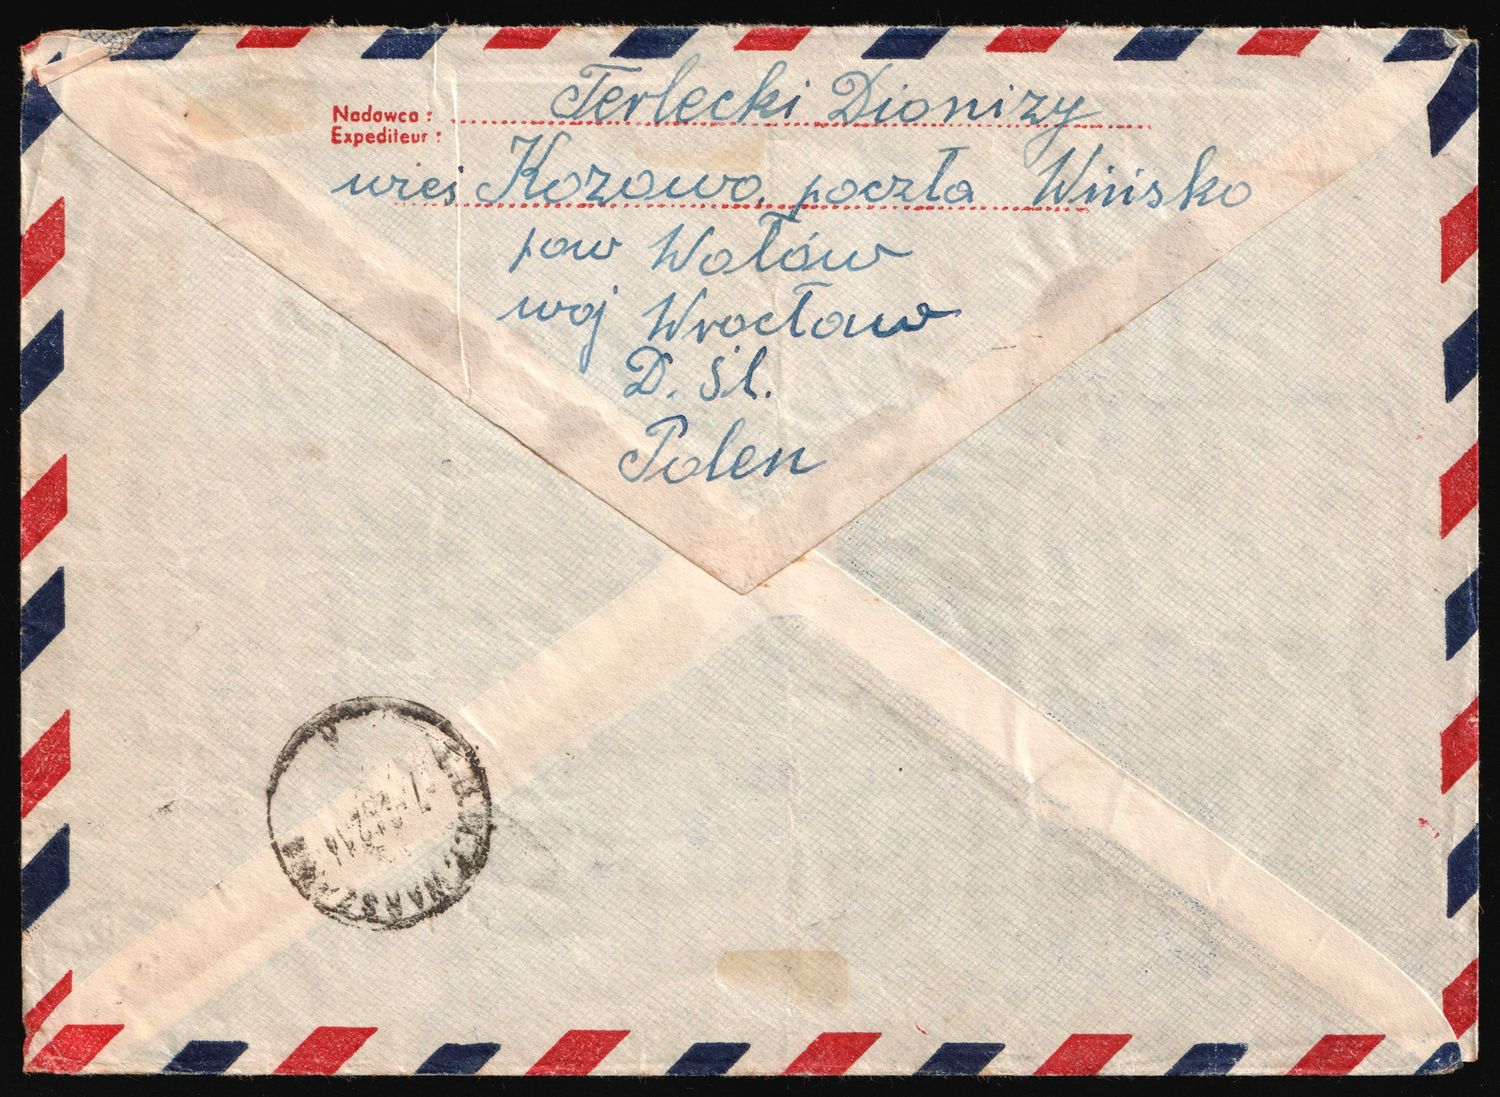 Nadawca: Terlecki Dionizy
Expediteur:
wieś Kozowo, poczta Wińsko
pow Wołów
woj Wrocław
D. Śl.
Polen
WARSZAWA